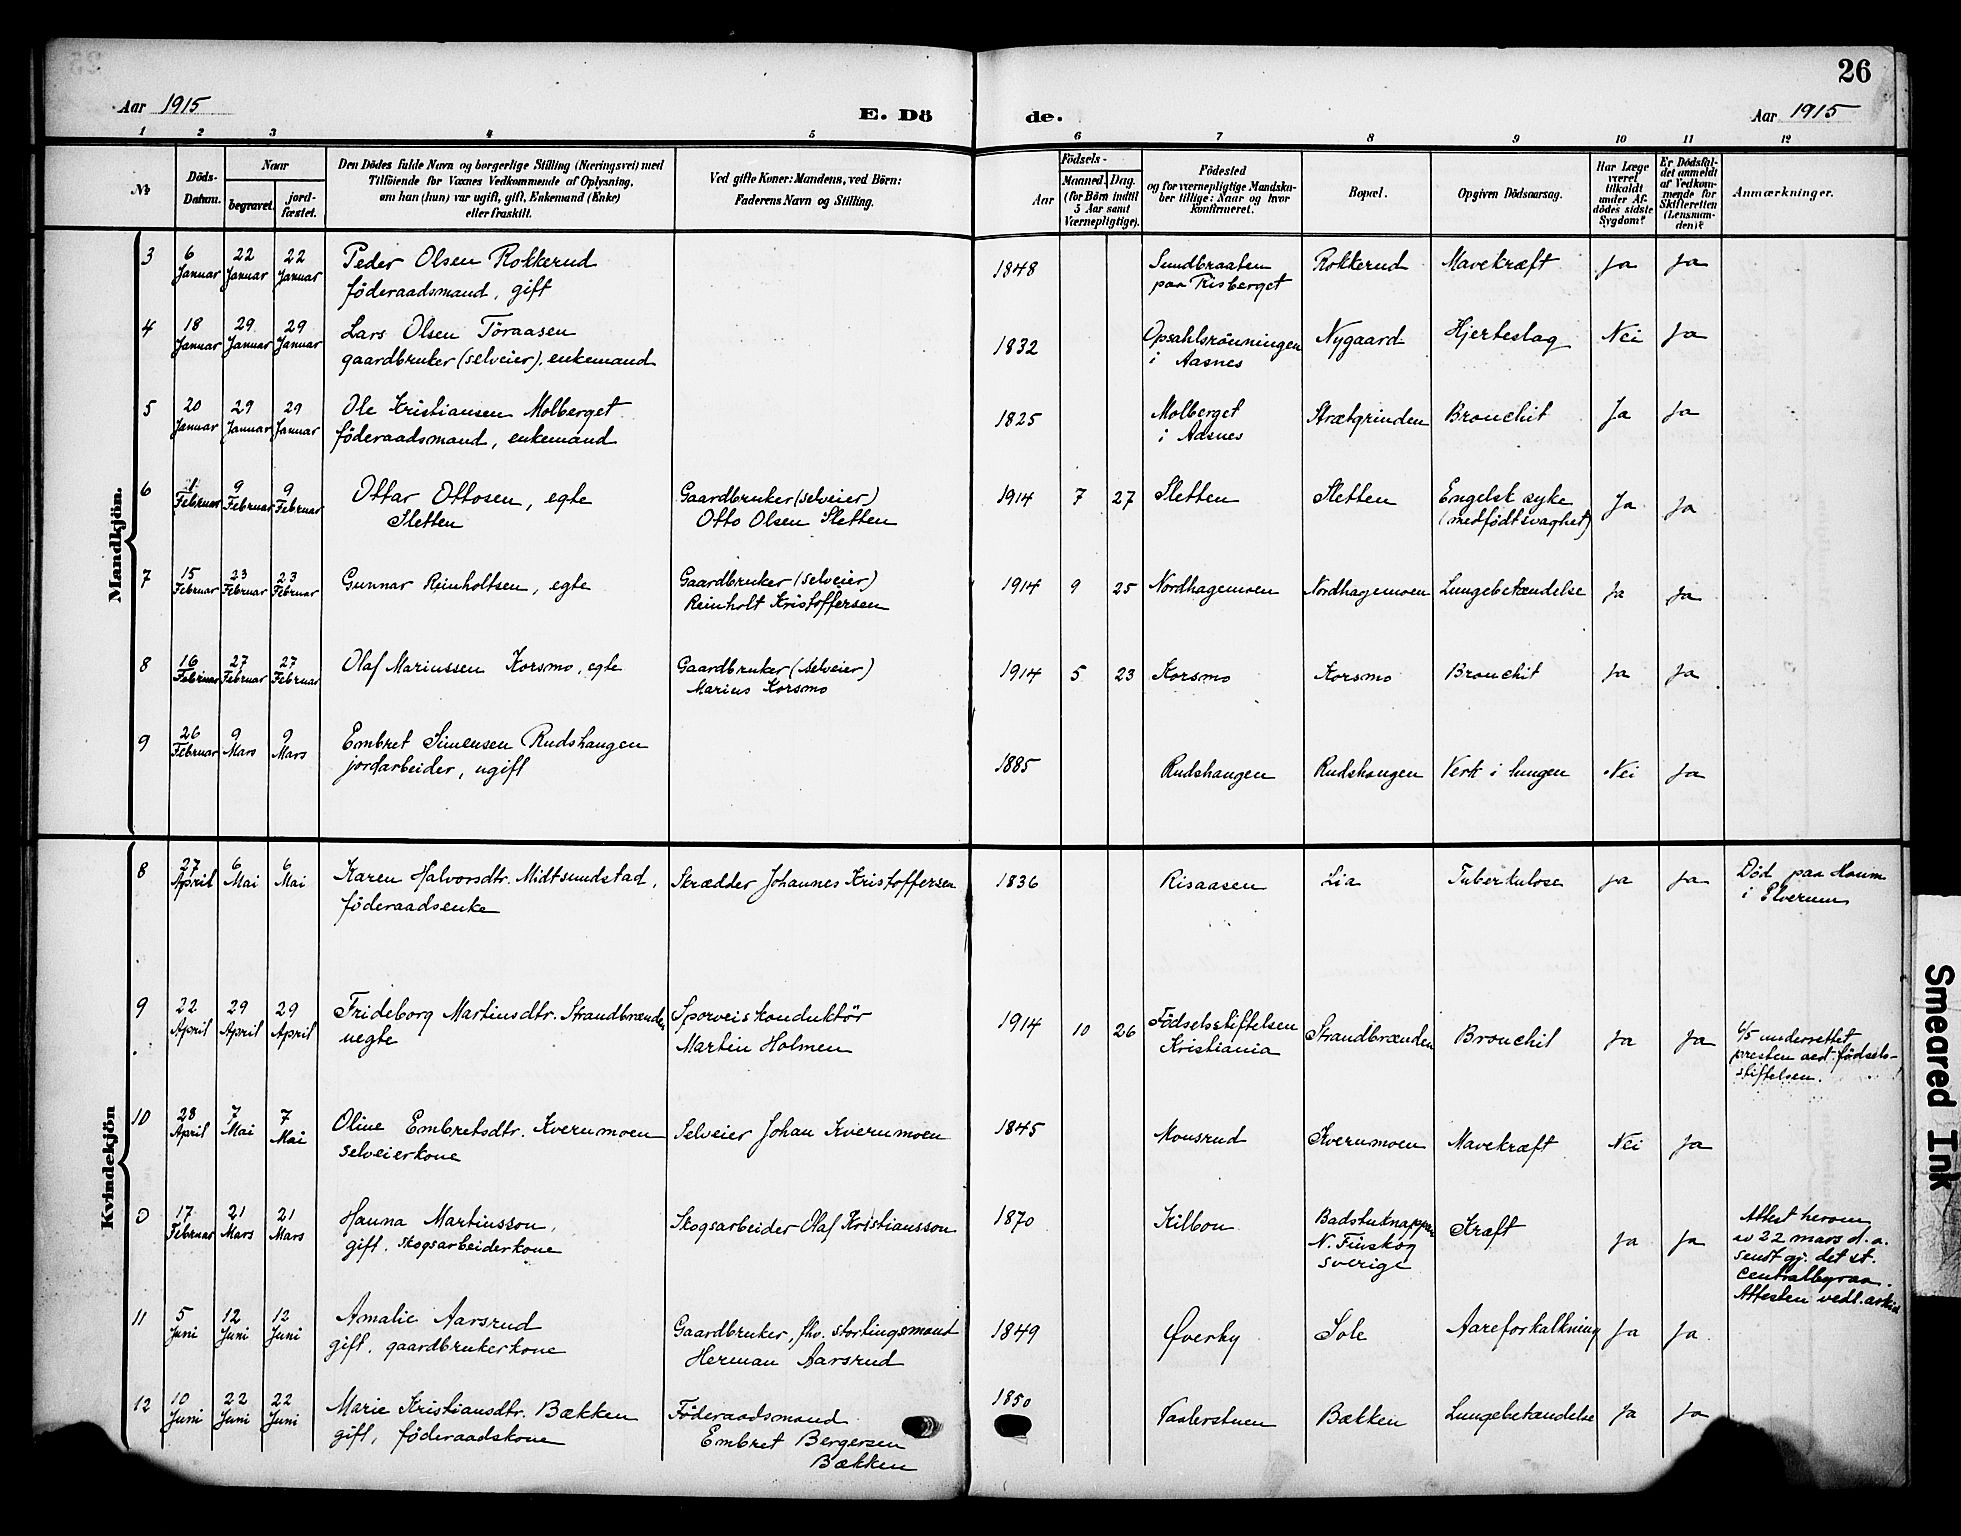 26
Aar 1915
E. Dö
de.
Aar 1915
1 2 3 4 5 6 7 8 9 10 11 12
No
Döds-
Datum.
Naar
begravet.
jord-
fæstet.
Den Dödes fulde Navn og borgerlige Stilling (Næringsvei) med
Tilföiende for Voxnes Vedkommende af Oplysning,
om han (hun) var ugift, gift, Enkemand (Enke)
eller fraskilt.
Ved gifte Koner: Mandens, ved Börn:
Faderens Navn og Stilling.
Födsels-
Aar
Maaned. Dag.
(for Börn indtil
5 Aar samt
Værnepligtige).
Födested
og for værnepligtige Mandska-
ber tillige: Naar og hvor
konfirmeret.
Bopæl.
Opgiven Dödsaarsag.
Har Læge
været
tilkaldt
under Af-
dödes sidste
Sygdom?
Er Dödsfal-
det anmeldt
af Vedkom-
mende for
Skifteretten
(Lensman-
den)?
Anmærkninger.
Mandkjön.
3 6 Januar 22 Januar 22 Januar Peder Olsen Rokkerud
föderaadsmand, gift
1848 Sundbraaten
paa Risberget Rokkerud Mavekræft Ja Ja
4 18 Januar 29 Januar 29 Januar Lars Olsen Töraasen
gaardbruker (selveier). enkemand
1832 Opsahlsrönningen
i Aasnes Nygaard Hjerteslag Nei Ja
5 20 Januar 29 Januar 29 Januar Ole Kristiansen Molberget
föderaadsmand, enkemand
1825 Molberget
i Aasnes Strætgrinden Bronchit Ja Ja
6 1 Februar 9 Februar 9 Februar Ottar Ottosen, egte
Sletten
Gaardbruker (selveier)
Otto Olsen Sletten
1914 7 27 Sletten Sletten Engelsk syke
(medfödt svaghet) Ja Ja
7 15 Februar 23 Februar 23 Februar Gunnar Reinholtsen, egte
Gaardbruker (selveier)
Reinholt Kristoffersen
1914 9 25 Nordhagemoen Nordhagemoen Lungebetændelse Ja Ja
8 16 Februar 27 Februar 27 Februar Olaf Mariussen Korsmo, egte
Gaardbruker (selveier)
Marius Korsmo
1914 5 23 Korsmo Korsmo Bronchit Ja Ja
9 26 Februar 9 Mars 9 Mars Embret Simensen Rudshaugen
jordarbeider, ugift
1885 Rudshaugen Rudshaugen Verk i lungen Nei Ja
Kvindekjön
8 27 April 6 Mai 6 Mai Karen Halvorsdtr. Midtsundstad,
föderaadsenke
Skrædder Johannes Kristoffersen
1836 Risaasen Lia Tuberkulose Ja Ja Död paa
i Elverum
9 22 April 29 April 29 April Frideborg Martinsdtr. Strandbrænden
uegte
Sporveiskonduktör
Martin Holmen
1914 10 26 Födselsstiftelsen
Kristiania Strandbrænden Bronchit Ja Ja 6/5 underrettet
presten ved födsels-
stiftelsen.
10 28 April 7 Mai 7 Mai Oline Embretsdtr. Kvernmoen
selveierkone
Selveier Johan Kvernmoen
1845 Monsrud Kvernmoen Mavekræft Nei Ja
0 17 Februar 21 Mars 21 Mars Hanna Martinsson,
gift. skogsarbeiderkone
Skogsarbeider Olaf Kristiansson
1870 Kilbon Badstuknappen
N. Finskog
Sverige Kræft Ja Ja Attest herom
22 mars d. a.
sendt gj. det st.
Centralbyraa.
Attesten vedl. arkiv
11 5 Juni 12 Juni 12 Juni Amalie Aarsrud
gift. gaardbrukerkone
Gaardbruker, fhv. stortingsmand
Herman Aarsrud
1849 Øverby Sole Aareforkalkning Ja Ja
12 10 Juni 22 Juni 22 Juni Marie Kristiansdtr. Bækken
gift, föderaadskone
Föderaadsmand
Embret Bergersen
Bækken
1850 Vaalerstuen Bækken Lungebetændelse Ja Ja
Smeared Ink